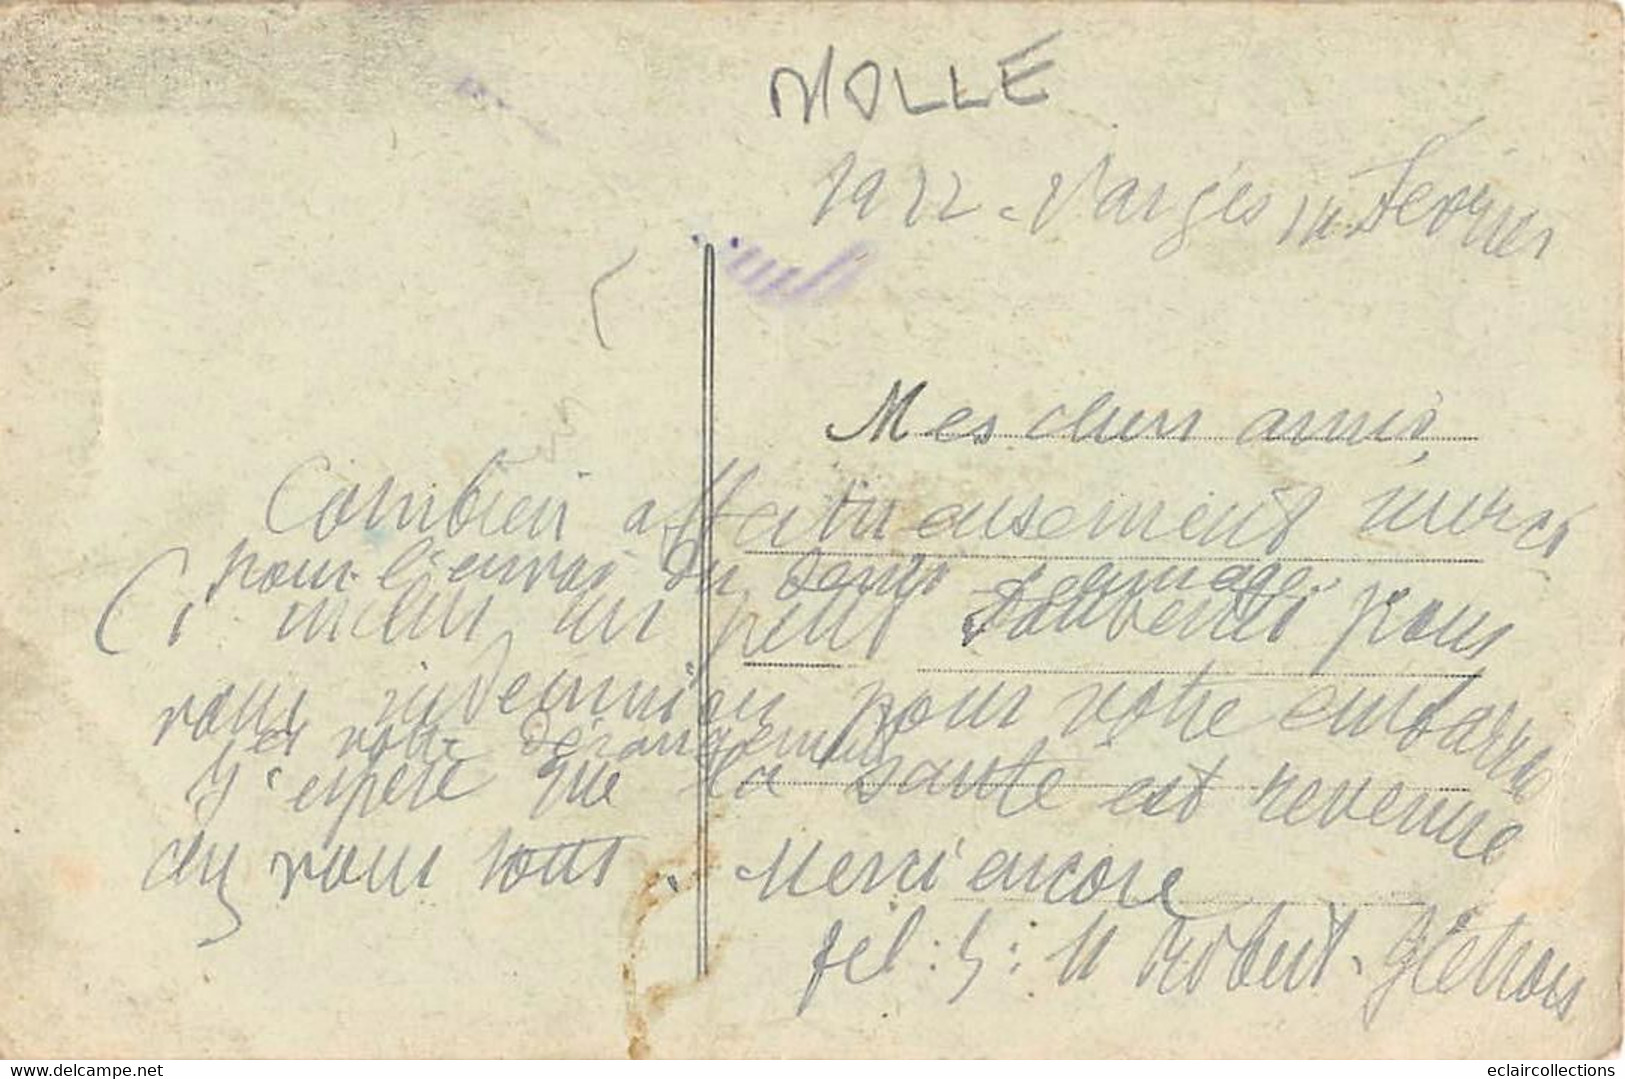 MOLLE
1922. Varges 14 Février
Mes chers amis,
Combien affectueusement merci
pour l'envoi du denis
Ci inclus un petit pour
vous indemniser pour votre embarras
et votre dérangement
J'espère que la santé est revenue
chez vous tous. Merci encore
fel : S : M Robert
www.delcampe.net
eclaircollections